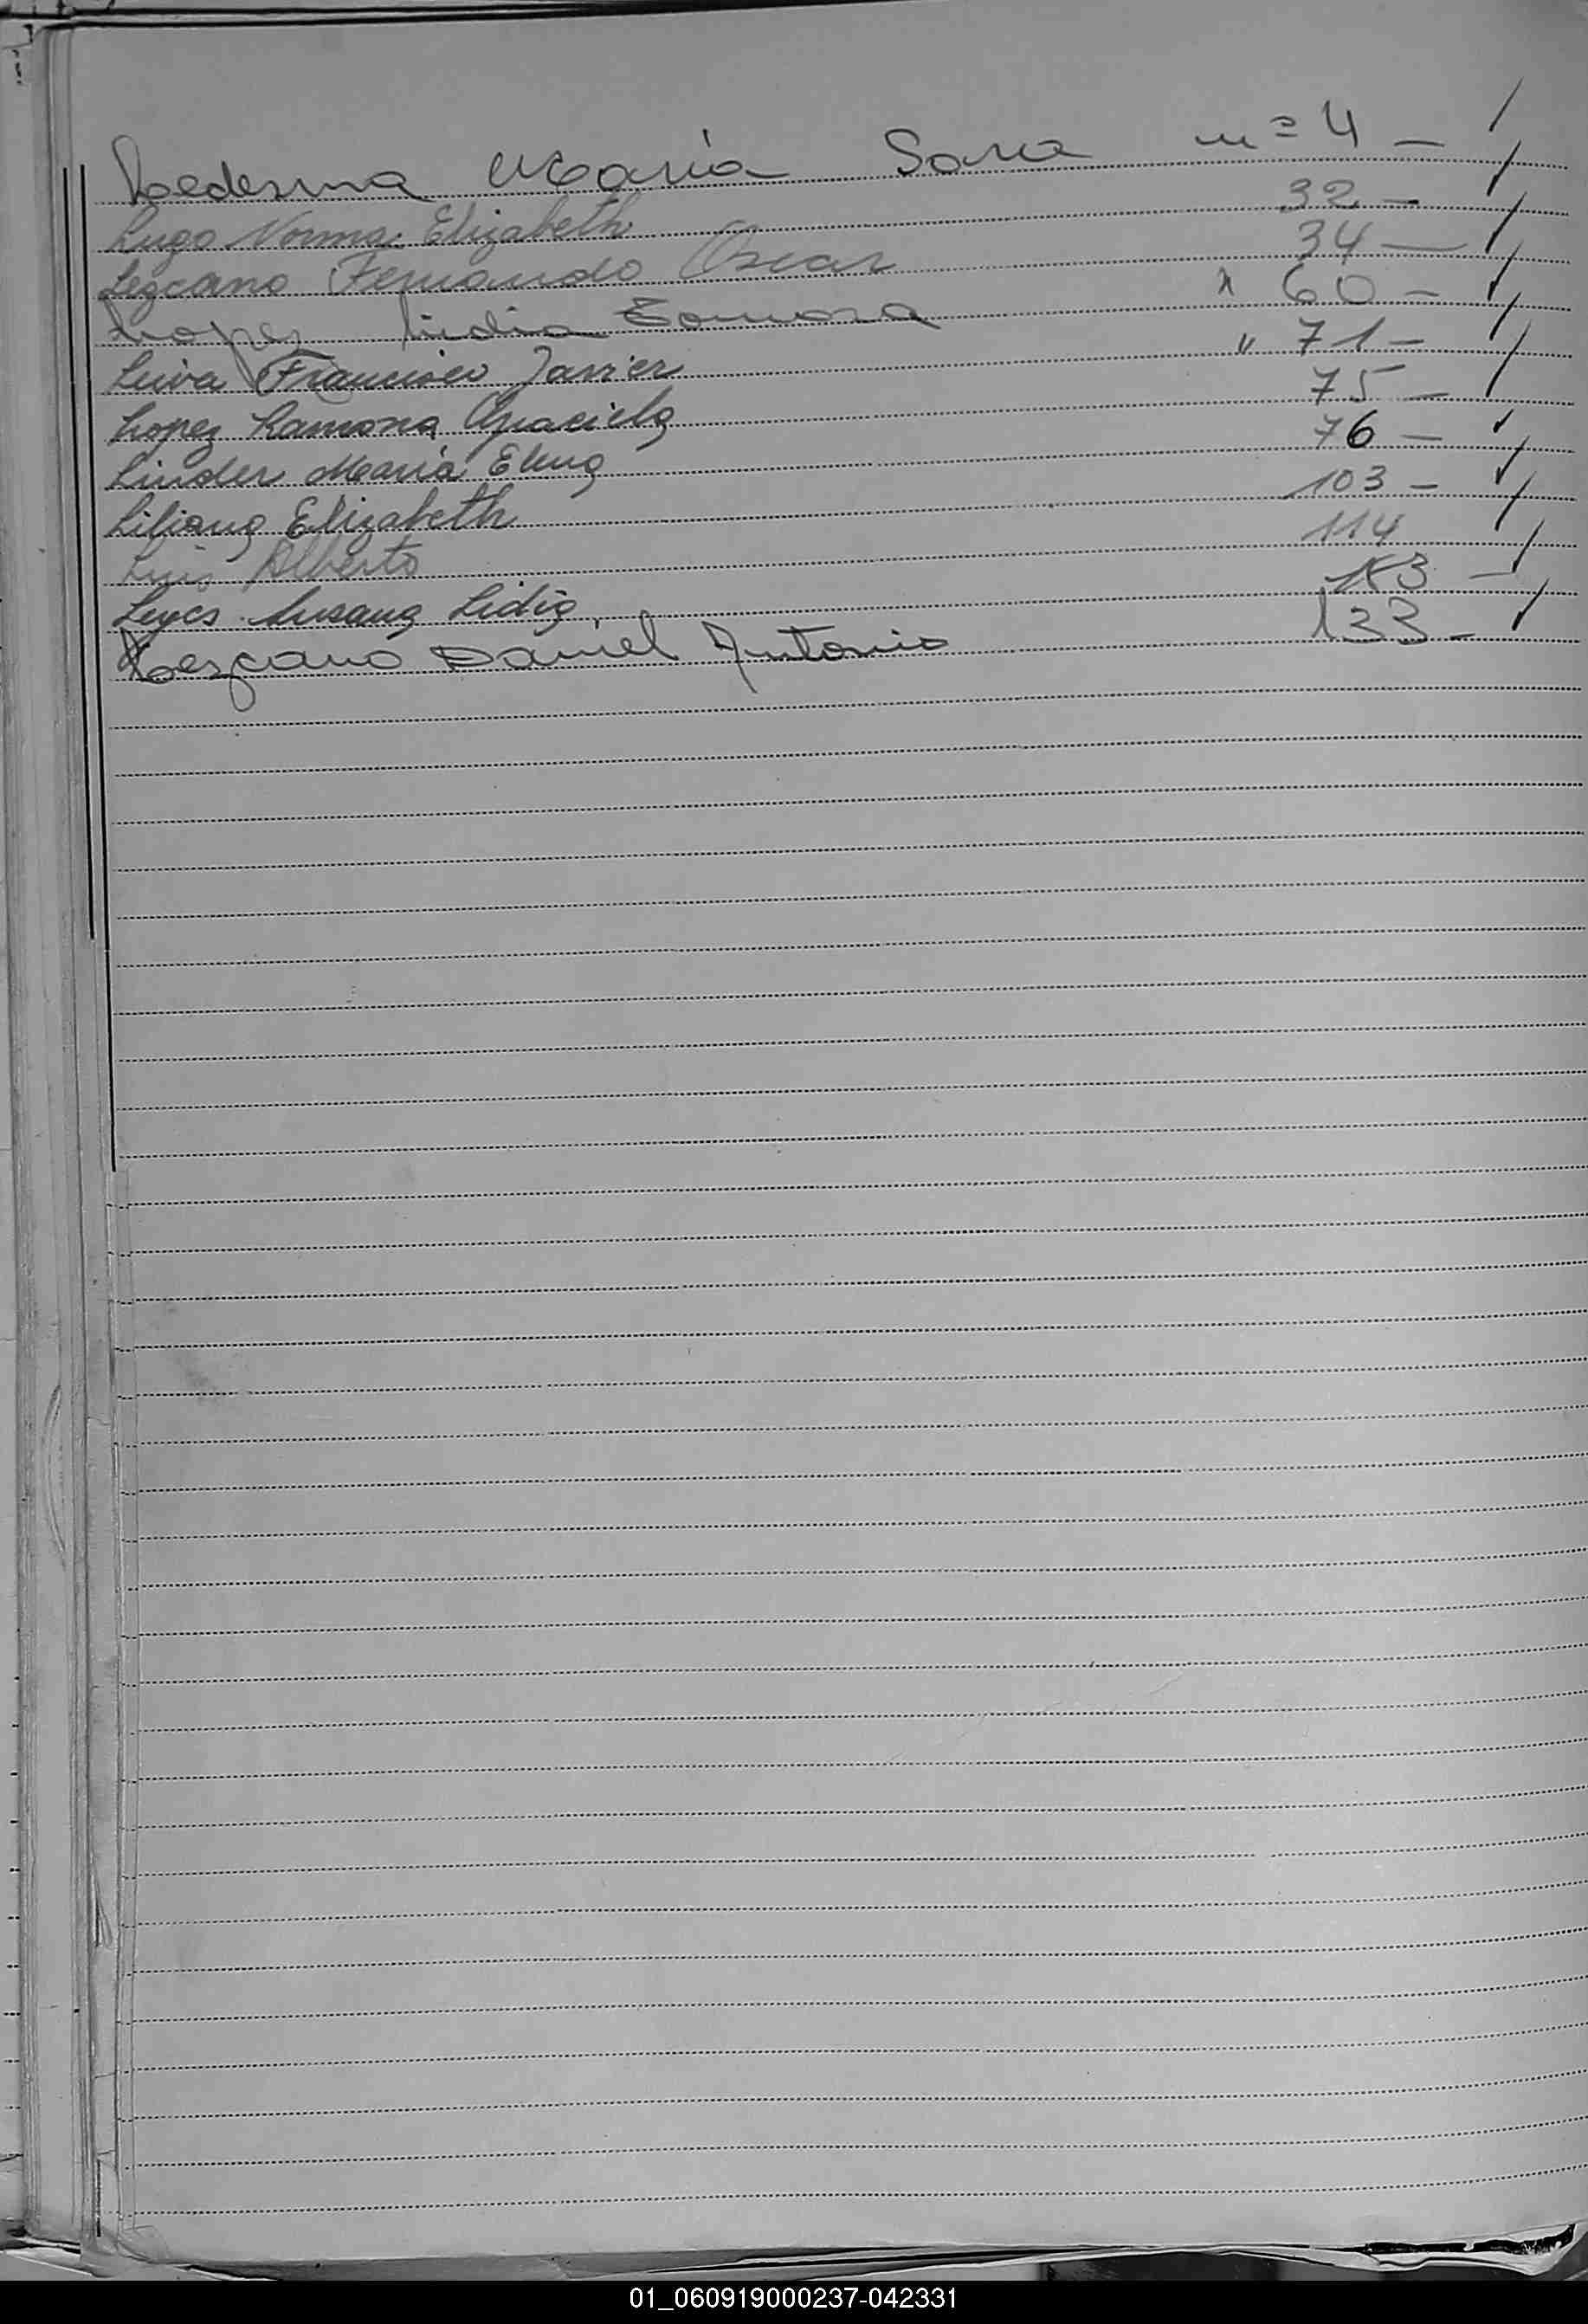 Ledesma Maria Sara nº 4 -
Lugo Norma Elizabeth 32 -
Lezcano Fernando Oscar 34 -
Lopez Lidia Ramona " 60 -
Leiva Francisco Javier " 71 -
Lopez Ramona Graciela 75 -
Linder Maria Elena 76 -
Liliana Elizabeth 103 -
Luis Alberto 114
Leyes Susana Lidia -
Lezcano Daniel Antonio 133 -
01_060919000237-042331